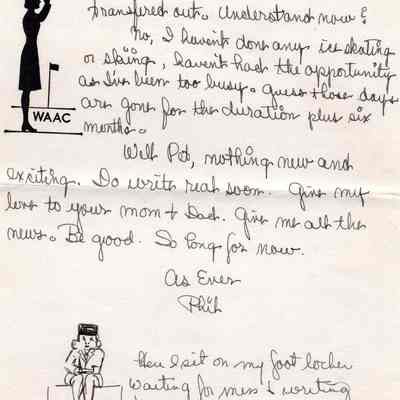 transfered out. Understand now?
No, I haven't done any ice skating
or skiing, haven't had the opportunity
as I've been too busy. Guess those days
are gone for the duration plus six
months.
WAAC
Well Pat, nothing new and
exciting. Do write real soon. Give my
love to your mom + Dad. Give me all the
news. Be good. So long for now.
As Ever
Phil
Here I sit on my foot locker
waiting for mess & writing